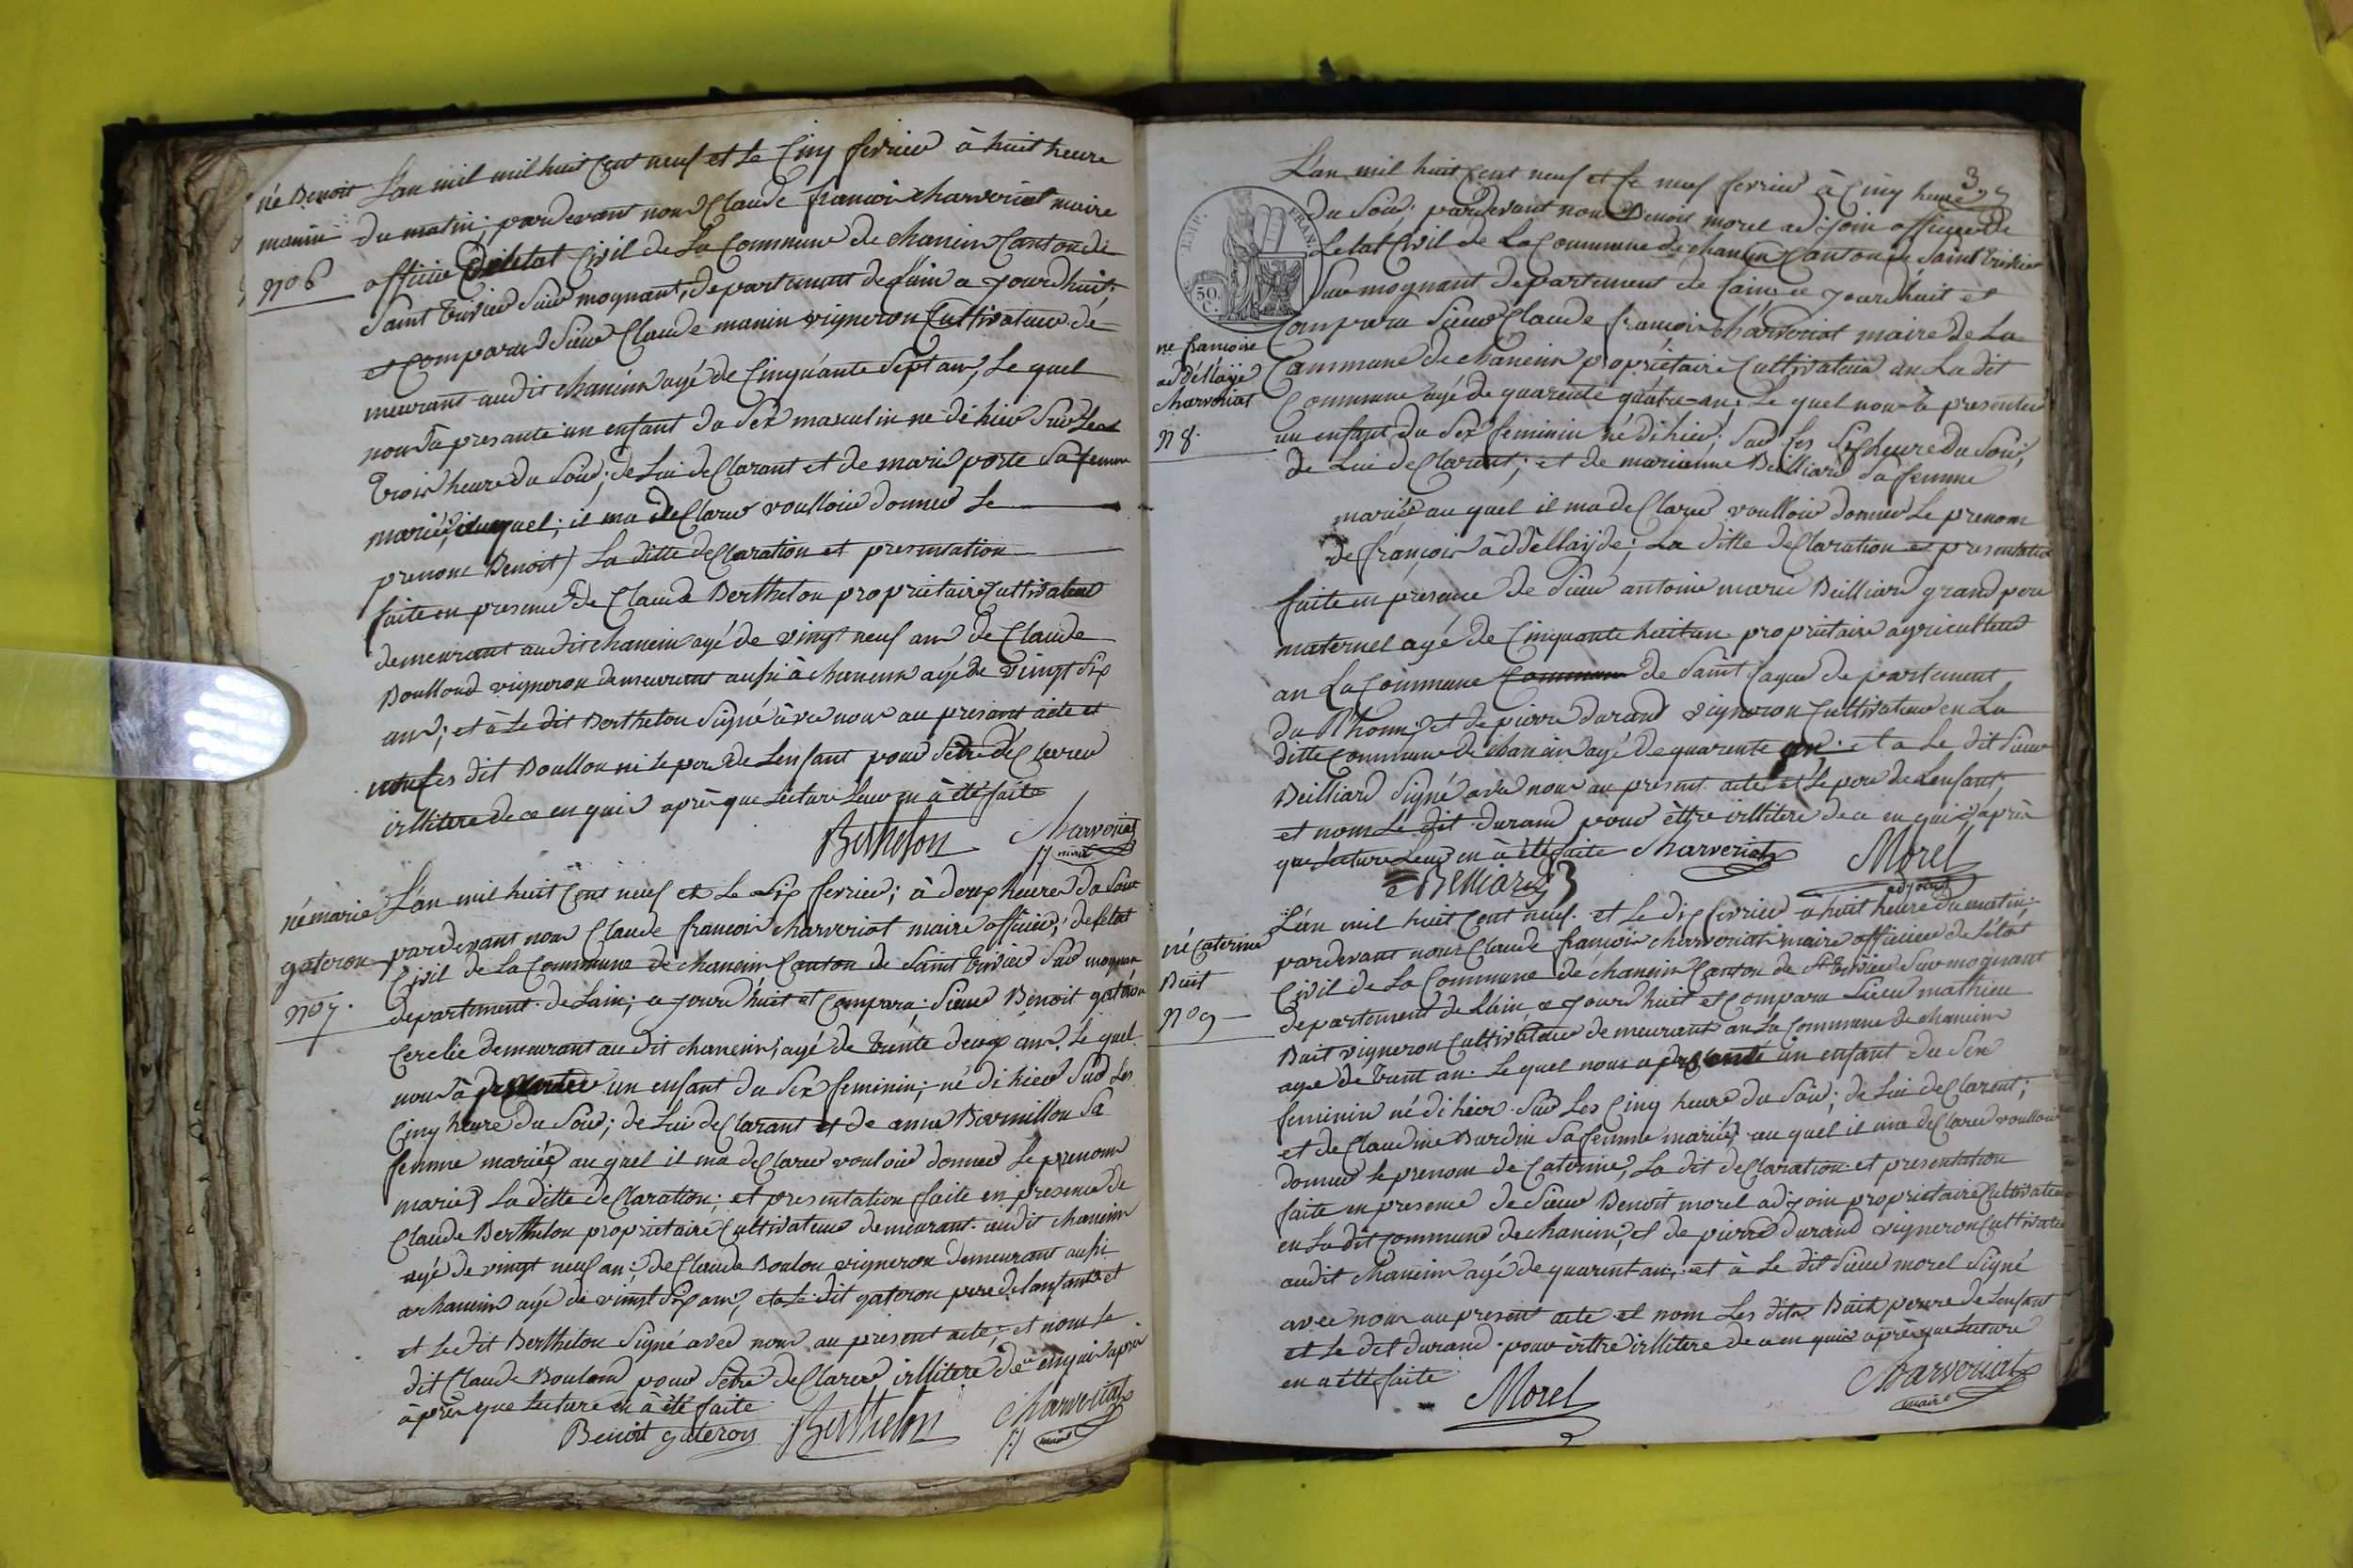 né Benoit
manin
n° 6
L'an mil mil huit Cent neuf et Le Cinq fevrier à huit heure
du matin; pardevant nous Claude francois charveriat maire
officie De letat Civil de La Commune de chanein Canton de
Saint Trivier Sur mognant, departement de L'ain a jourdhuit,
et Comparu Sieur Claude manin vigneron Cultivateur de
meurant audit chanein agé de Cinquante Sept an, Le quel
nous à presante un enfant du Sex masculin ne di hier Sur Les
Trois heure du Soir, de Lui deClarant et de marie porte Sa femme
mariée, auquel; il ma deClarer voulloir donner Le
prenom Benoit) La ditte deClaration et presentation
faite en presence de Claude Berthelon proprietaire Cultivateur
demeurant audit chanein agé de vingt neuf an de Claude
Boulloud vigneron demeurant aussi à chanein agé de vingt Six
ans; et à Le dit Berthelon Signé àvec nous au present acte et
non Les dit Boullon ni Le pere de Lenfant pour Sètre déClarer
irllitere de ce enquis aprèr que Lecture Leur en à été faite
Berthelon Charveriat
maire
né marie
gateron
n° 7.
L'an mil huit Cent neuf et Le Six fevrier; à deux heures du Soir
pardevant nous Claude francois charveriat maire officier, de létat
Civil de La Commune de chanein Canton de Saint Trivier Sur mognan
departement de Lain; a jourd'huit et Compara; Sieur Benoit gateron
Cerclie demeurant au dit chanein; agé de Trente deux ans. Le quel
nous à presenter un enfant du Sex feminin; né di hier Sur Les
Cinq heure du Soir; de Lui deClarant et de anne Bormillon Sa
femme mariée auquel il ma deClarer vouloir donner Le prenom
marie) La ditte deClaration; et presentation faite en presence de
Claude Berthelon proprietaire Cultivateur demeurant audit chanein
agé de vingt neuf an; de Claude Boulon vigneron demeurant aussi
a chanein agé de vingt Six ans, et a Le dit gateron pere de lanfant et
et Le dit Berthelon Signé avec nous au present acte; et nom Le
dit Claude Boulond pour Sètre deClarer irllitere de ce enquis apres
àprèr que Lecture en à été faite
Benoit gateron Berthelon Charveriat
maire
3
L'an mil huit Cent neuf et Le neuf fevrier à Cinq heure
du Soir: pardevant nous Benoit morel adjoin officier de
Letat Civil de La Commune de chanein Canton de Saint Trivier
Sur mognant departement de Lain ce jourdhuit et
IMP. FRAN.
50.
C.
ne francoise
addélayé
charveriat
n 8.
Comparu Sieur Claude françois charveriat maire de La
Commune de chanein proprietaire Cultivateur en La dit
Commune agé de quarente quatre an; Le quel nous à presenter
un enfant du Sex feminin né di hier; Sur Les Six heure du Soir,
de Lui deClarant; et de marianne Beilliard Sa femme
mariée au quel il ma deClarer voulloir donner Le prenom
de françoise àddéllayde; La ditte deClaration et presentation
faite en presence de Sieur antoine marie Beilliard grand pere
maternel agé de Cinquante huit an proprietaire agriculteur
an La Commune Commune de Saint Lager departement
du Rhonne et de pierre durand vigneron Cultivateur en La
ditte Commune de chanein agé de quarente an. et a Le dit Sieur
Beilliard Signé avec nous au present acte et Le pere de Lenfant;
et nom Le dit durand pour èttre irllitere de ce enquis aprèr
que Lecture Leur en à été faite Charveriat Morel
Belliard adjoint
né Caterine
Buit
n° 9
L'an mil huit Cent neuf et Le dix fevrier à huit heure du matin;
pardevant nous Claude françois charveriat maire officier de Létat
Civil de La Commune de chanein Canton de St Trivier Sur mognant
departement de Lain, ce jourd'huit et Compara Sieur mathieu
Buit vigneron Cultivateur demeurant an La Commune de chanein
agé de Trent an. Le quel nous a presanté un enfant du Sex
feminin né di hier Sur Les Cinq heure du Soir; de Lui deClarent;
et de Claudine Burdin Sa femme mariée, au quel il ma deClarer voulloir
donner Le prenom de Caterine, La dit deClaration et presentation
faite en presence de Sieur Benoit morel adjoin proprietaire Cultivateur
en La dit Commune de chanein; et de pierre durand vigneron Cultivateur
audit chanein agé de quarent an; et à Le dit Sieur morel Signé
avec nous au present acte et nom Les dits Buit pere de Lenfant
et Le dit durand pour èttre irllitere de ce enquis aprèr que Lecture
en a été faite
Morel Charveriat
maire